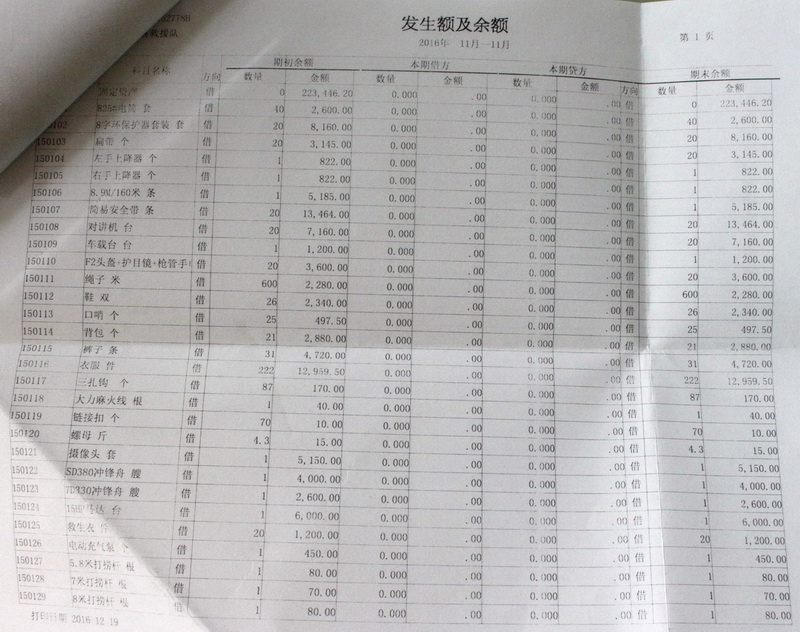 发生额及余额
2016年 11月—11月 第 1 页
科目名称 方向 期初余额 本期借方 本期贷方 方向 期末余额
数量 金额 数量 金额 数量 金额 数量 金额
借 0 223,446.20 0.000 .00 0.000 .00 借 0 223,446.20
套 借 40 2,600.00 0.000 .00 0.000 .00 借 40 2,600.00
8字环保护器套装 套 借 20 8,160.00 0.000 .00 0.000 .00 借 20 8,160.00
150103 扁带 个 借 20 3,145.00 0.000 .00 0.000 .00 借 20 3,145.00
150104 左手上降器 个 借 1 822.00 0.000 .00 0.000 .00 借 1 822.00
150105 右手上降器 个 借 1 822.00 0.000 .00 0.000 .00 借 1 822.00
150106 8.9M/160米 条 借 1 5,185.00 0.000 .00 0.000 .00 借 1 5,185.00
150107 简易安全带 条 借 20 13,464.00 0.000 .00 0.000 .00 借 20 13,464.00
150108 对讲机 台 借 20 7,160.00 0.000 .00 0.000 .00 借 20 7,160.00
150109 车载台 台 借 1 1,200.00 0.000 .00 0.000 .00 借 1 1,200.00
150110 F2头盔+护目镜+枪管手 借 20 3,600.00 0.000 .00 0.000 .00 借 20 3,600.00
150111 绳子 米 借 600 2,280.00 0.000 .00 0.000 .00 借 600 2,280.00
150112 鞋 双 借 26 2,340.00 0.000 .00 0.000 .00 借 26 2,340.00
150113 口哨 个 借 25 497.50 0.000 .00 0.000 .00 借 25 497.50
150114 背包 个 借 21 2,880.00 0.000 .00 0.000 .00 借 21 2,880.00
150115 裤子 条 借 31 4,720.00 0.000 .00 0.000 .00 借 31 4,720.00
150116 衣服 件 借 222 12,959.50 0.000 .00 0.000 .00 借 222 12,959.50
150117 三扎钩 个 借 87 170.00 0.000 .00 0.000 .00 借 87 170.00
150118 大力麻火线 根 借 1 40.00 0.000 .00 0.000 .00 借 1 40.00
150119 链接扣 个 借 70 10.00 0.000 .00 0.000 .00 借 70 10.00
150120 螺母 斤 借 4.3 15.00 0.000 .00 0.000 .00 借 4.3 15.00
150121 摄像头 套 借 1 5,150.00 0.000 .00 0.000 .00 借 1 5,150.00
150122 SD380冲锋舟 艘 借 1 4,000.00 0.000 .00 0.000 .00 借 1 4,000.00
150123 冲锋舟 艘 借 1 2,600.00 0.000 .00 0.000 .00 借 1 2,600.00
150124 马达 台 借 1 6,000.00 0.000 .00 0.000 .00 借 1 6,000.00
150125 救生衣 件 借 20 1,200.00 0.000 .00 0.000 .00 借 20 1,200.00
150126 电动充气泵 个 借 1 450.00 0.000 .00 0.000 .00 借 1 450.00
150127 5.8米打捞杆 根 借 1 80.00 0.000 .00 0.000 .00 借 1 80.00
150128 7米打捞杆 根 借 1 70.00 0.000 .00 0.000 .00 借 1 70.00
150129 8米打捞杆 根 借 1 80.00 0.000 .00 0.000 .00 借 1 80.00
打印日期 2016.12.19